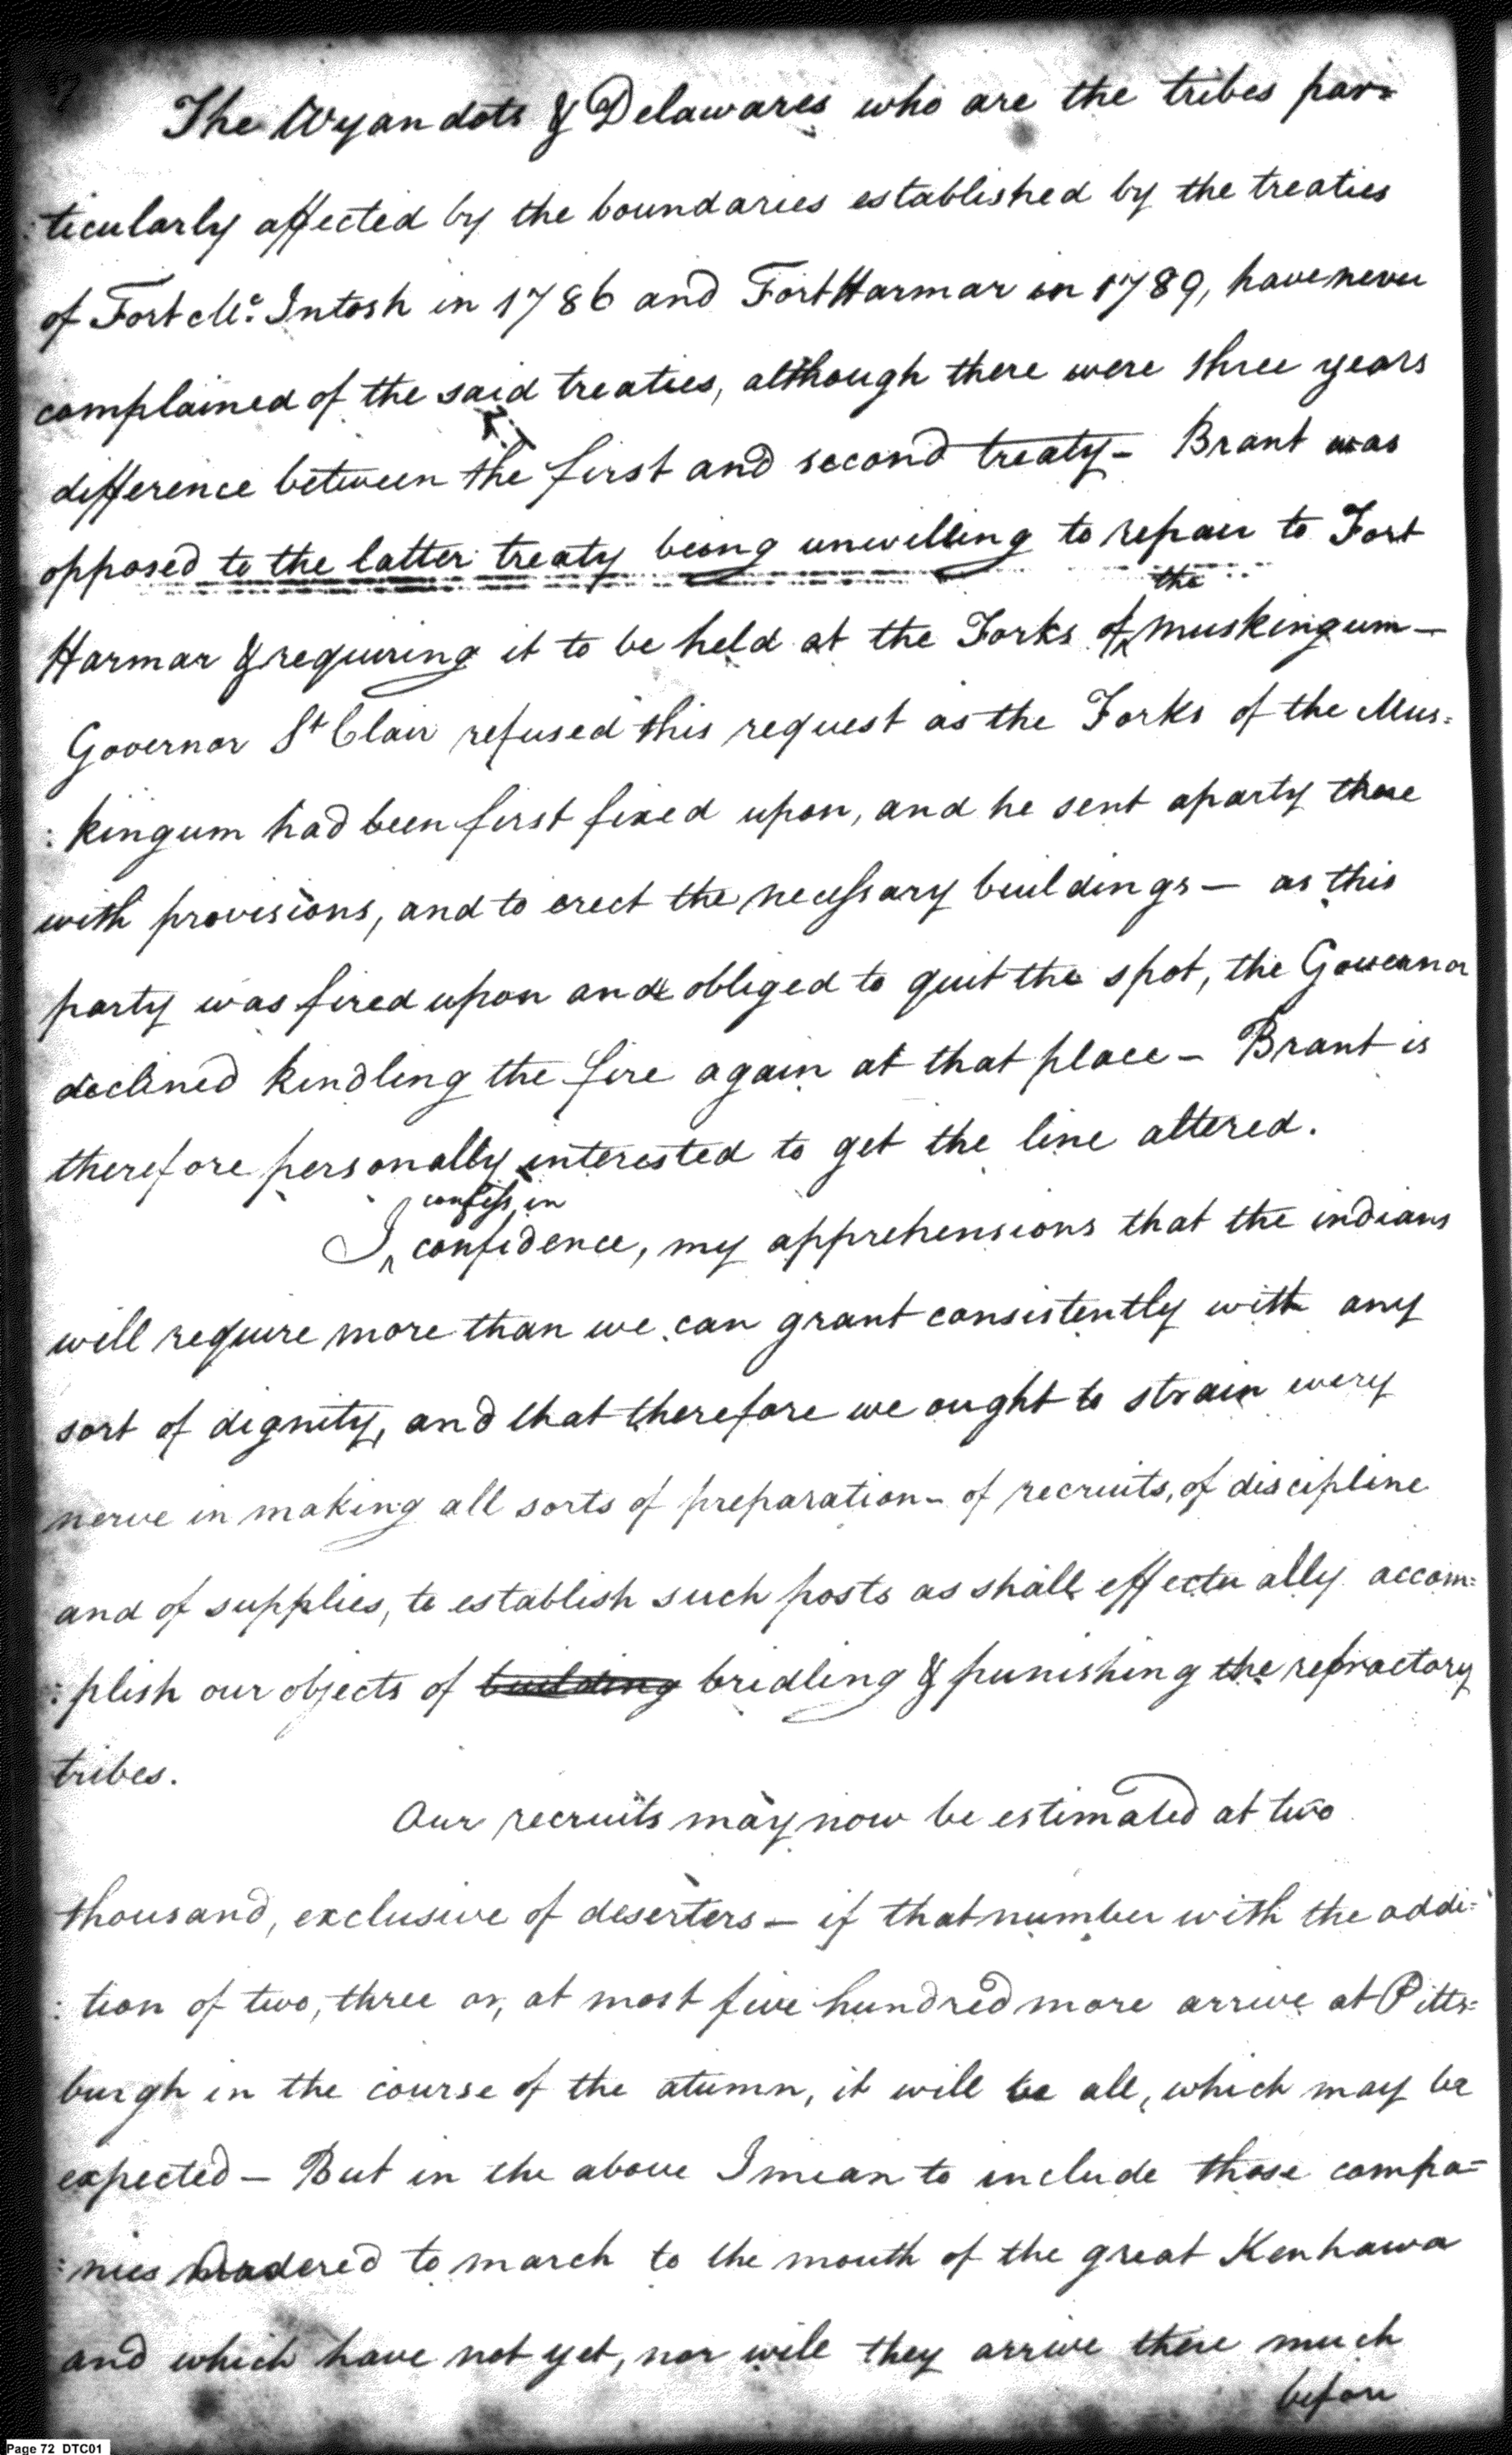 The Wyandots & Delawares who are the tribes par=
:ticularly affected by the boundaries established by the treaties
of Fort Mc. Intosh in 1786 and Fort Harmar in 1789, have never
complained of the said treaties, although there were three years
difference between the first and second treaty – Brant was
opposed to the latter treaty being unwilling to repair to Fort
the
Harmar & requiring it to be held at the Forks of Muskingum –
Governor St Clair refused this request as the Forks of the Mus=
:kingum had been first fixed upon, and he sent a party there
with provisions, and to erect the necessary buildings – as this
party was fired upon and obliged to quit the spot, the Governor
declined kindling the fire again at that place – Brant is
therefore personally interested to get the line altered.
confess, in
I confidence, my apprehensions that the indians
will require more than we can grant consistently with any
sort of dignity, and that therefore we ought to strain every
nerve in making all sorts of preparation – of recruits, of discipline
and of supplies, to establish such posts as shall effectually accom=
:plish our objects of building bridling & punishing the refractory
tribes.
Our recruits may now be estimated at two
thousand, exclusive of deserters – if that number with the addi=
:tion of two, three or, at most five hundred more arrive at Pitts=
burgh in the course of the atumn, it will be all, which may be
expected – But in the above I mean to include those compa=
:nies ordered to march to the mouth of the great Kenhawa
and which have not yet, nor will they arrive there much
before
Page 72 DTC01